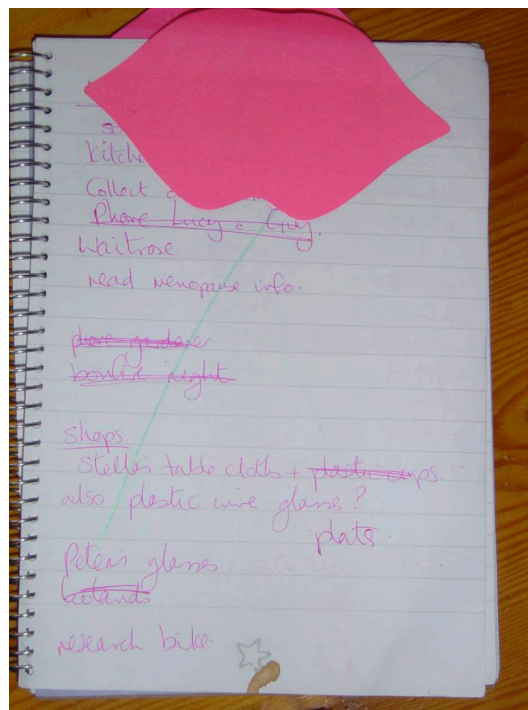 Kitche
Collect
Phone Lucy & Guy.
Waitrose
read menopause info.
phone gardener
bonfire night
Shops
Stella's table cloths + plastic cups.
also plastic wine glasses?
plats
Peter's glasses
research bike